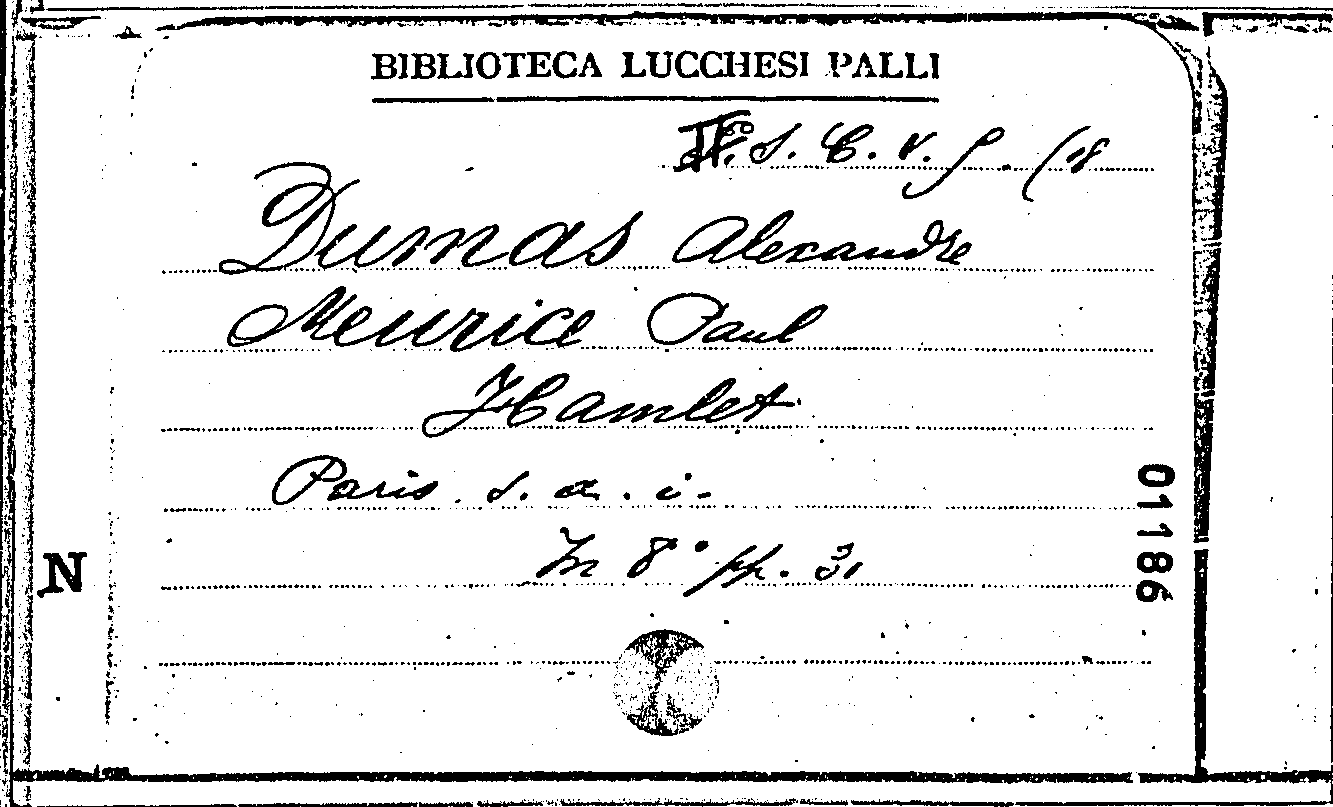 BIBLIOTECA LUCCHESI PALLI
S. C. V. (18
Dumas Alexandre
Meurice Paul
Hamlet
Paris. s. a. i.
In 8° pp. 31
N
01186